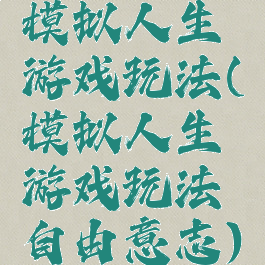 模拟人生
游戏玩法(
模拟人生
游戏玩法
自由意志)